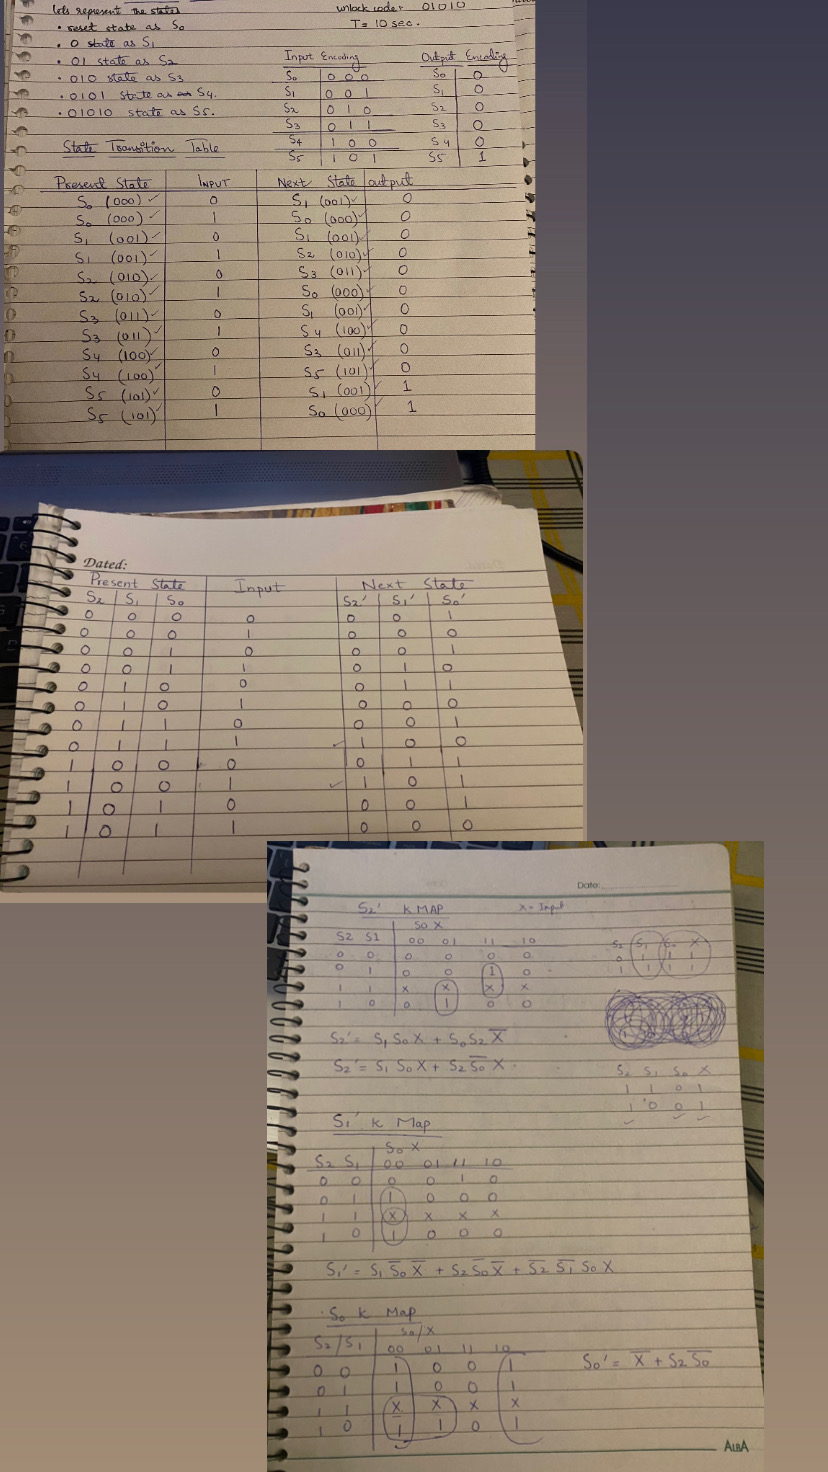 lets represent the states
unlock code: 01010
• reset state as S0
T = 10 sec.
• 0 state as S1
• 01 state as S2
• 010 state as S3
• 0101 state as S4.
• 01010 state as S5.
Input Encoding
S0 0 0 0
S1 0 0 1
S2 0 1 0
S3 0 1 1
S4 1 0 0
S5 1 0 1
Output Encoding
S0 0
S1 0
S2 0
S3 0
S4 0
S5 1
State Transition Table
Present State INPUT Next State output
S0 (000) ✓ 0 S1 (001) ✓ 0
S0 (000) ✓ 1 S0 (000) ✓ 0
S1 (001) ✓ 0 S1 (001) ✓ 0
S1 (001) ✓ 1 S2 (010) ✓ 0
S2 (010) ✓ 0 S3 (011) ✓ 0
S2 (010) ✓ 1 S0 (000) ✓ 0
S3 (011) ✓ 0 S1 (001) ✓ 0
S3 (011) ✓ 1 S4 (100) ✓ 0
S4 (100) ✓ 0 S3 (011) ✓ 0
S4 (100) ✓ 1 S5 (101) ✓ 0
S5 (101) ✓ 0 S1 (001) ✓ 1
S5 (101) ✓ 1 S0 (000) ✓ 1
Dated:
Present State Input Next State
S2 S1 S0 S2' S1' S0'
0 0 0 0 0 0 1
0 0 0 1 0 0 0
0 0 1 0 0 0 1
0 0 1 1 0 1 0
0 1 0 0 0 1 1
0 1 0 1 0 0 0
0 1 1 0 0 0 1
0 1 1 1 ✓ 1 0 0
1 0 0 0 0 1 1
1 0 0 1 ✓ 1 0 1
1 0 1 0 0 0 1
1 0 1 1 0 0 0
Date:
S2' K MAP x = Input
S0 X
S2 S1 00 01 11 10
0 0 0 0 0 0
0 1 0 0 1 0
1 1 x x x x
1 0 0 1 0 0
S2 S1 S0 X
0 1 1 1
1 1 1 1
S2' = S1 S0 X + S0 S2 X̅
S2' = S1 S0 X + S2 S̅0 X
S2 S1 S0 X
1 1 0 1
1 0 0 1
✓ ✓ ✓
S1' K Map
S0 X
S2 S1 00 01 11 10
0 0 0 0 1 0
0 1 1 0 0 0
1 1 x x x x
1 0 1 0 0 0
S1' = S1 S̅0 X̅ + S2 S̅0 X̅ + S̅2 S̅1 S0 X
S0 K Map
S0/X
S2/S1 00 01 11 10
0 0 1 0 0 1
0 1 1 0 0 1
1 1 x x x x
1 0 1 1 0 1
S0' = X̅ + S2 S̅0
ALBA